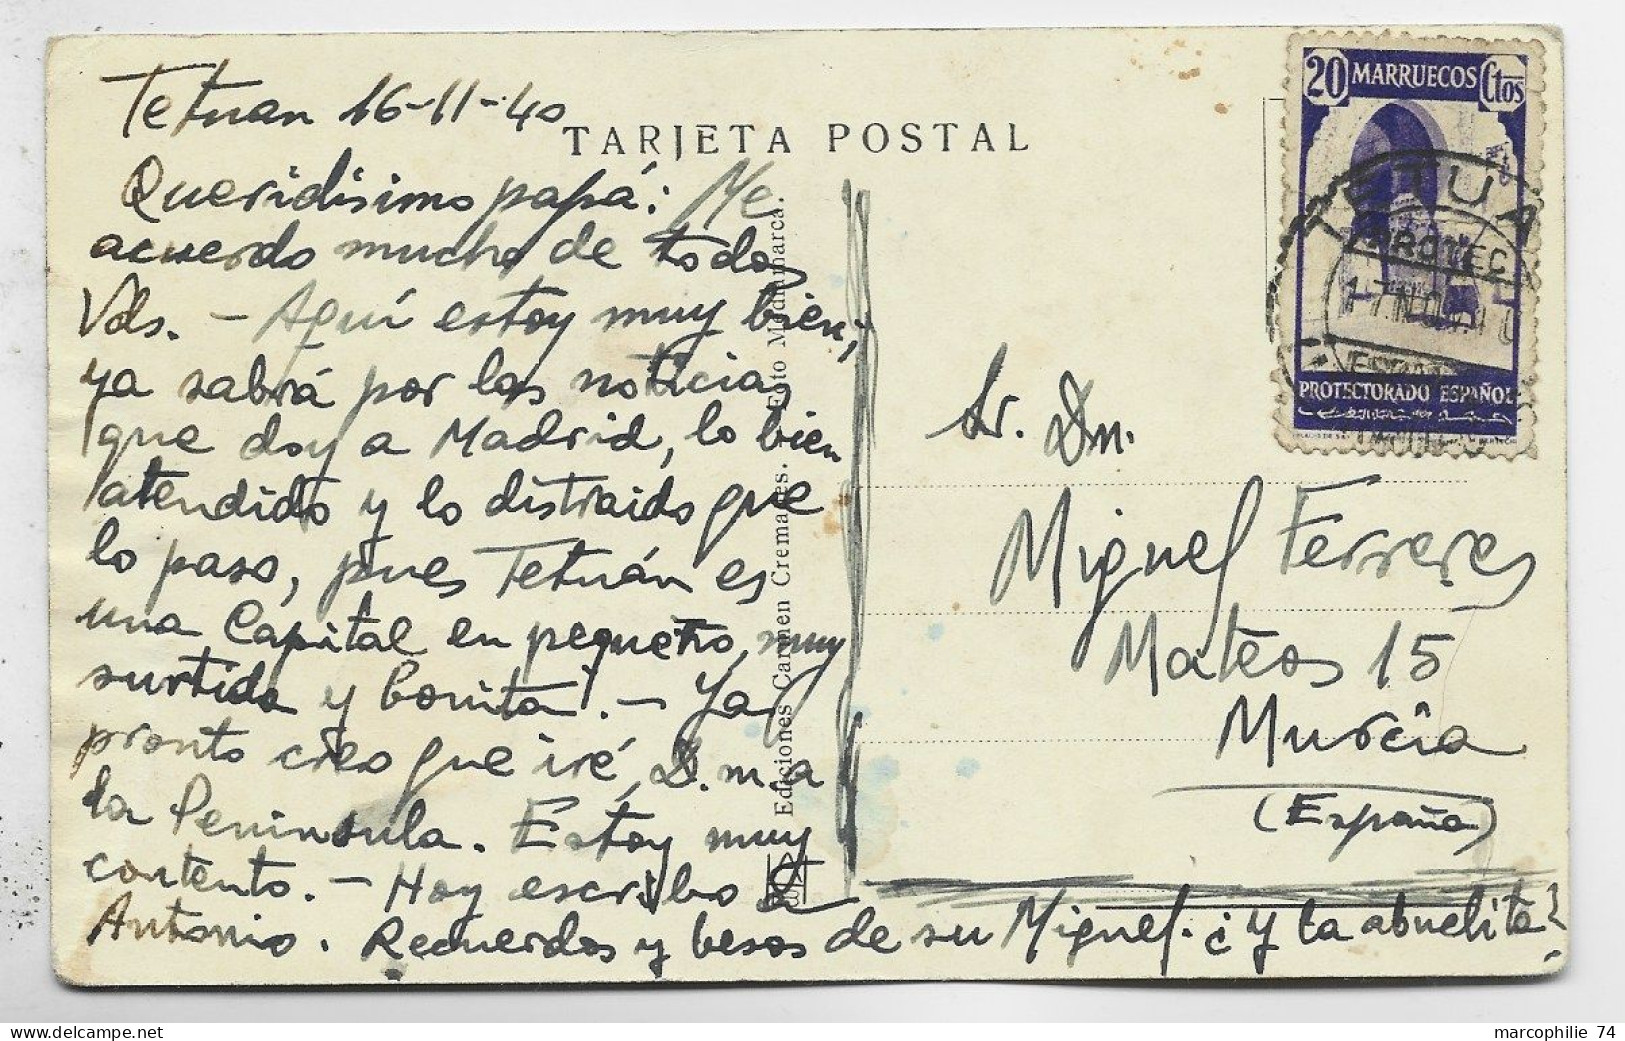 Tetuan 16-11-40
TARJETA POSTAL
Queridísimo papá: Me
acuerdo mucho de todos
Vds. - Aquí estoy muy bien,
ya sabrá por las noticias
que doy a Madrid, lo bien
atendido y lo distraido que
lo paso, pues Tetuán es
una Capital en pequeño, muy
surtida y bonita. - Ya
pronto creo que iré, D.m. a
la Península. Estoy muy
contento. - Hoy escribo a
Antonio. Recuerdos y besos de su Miguel. ¿y la abuelita?
Ediciones Carmen Cremades. Foto Madinamarca.
20 MARRUECOS Ctos
TETUA
PROTEC
17 NOV
PROTECTORADO ESPAÑOL
Sr. Dn.
Miguel Ferreres
Mateos 15
Murcia
(España)
marcophilie 74